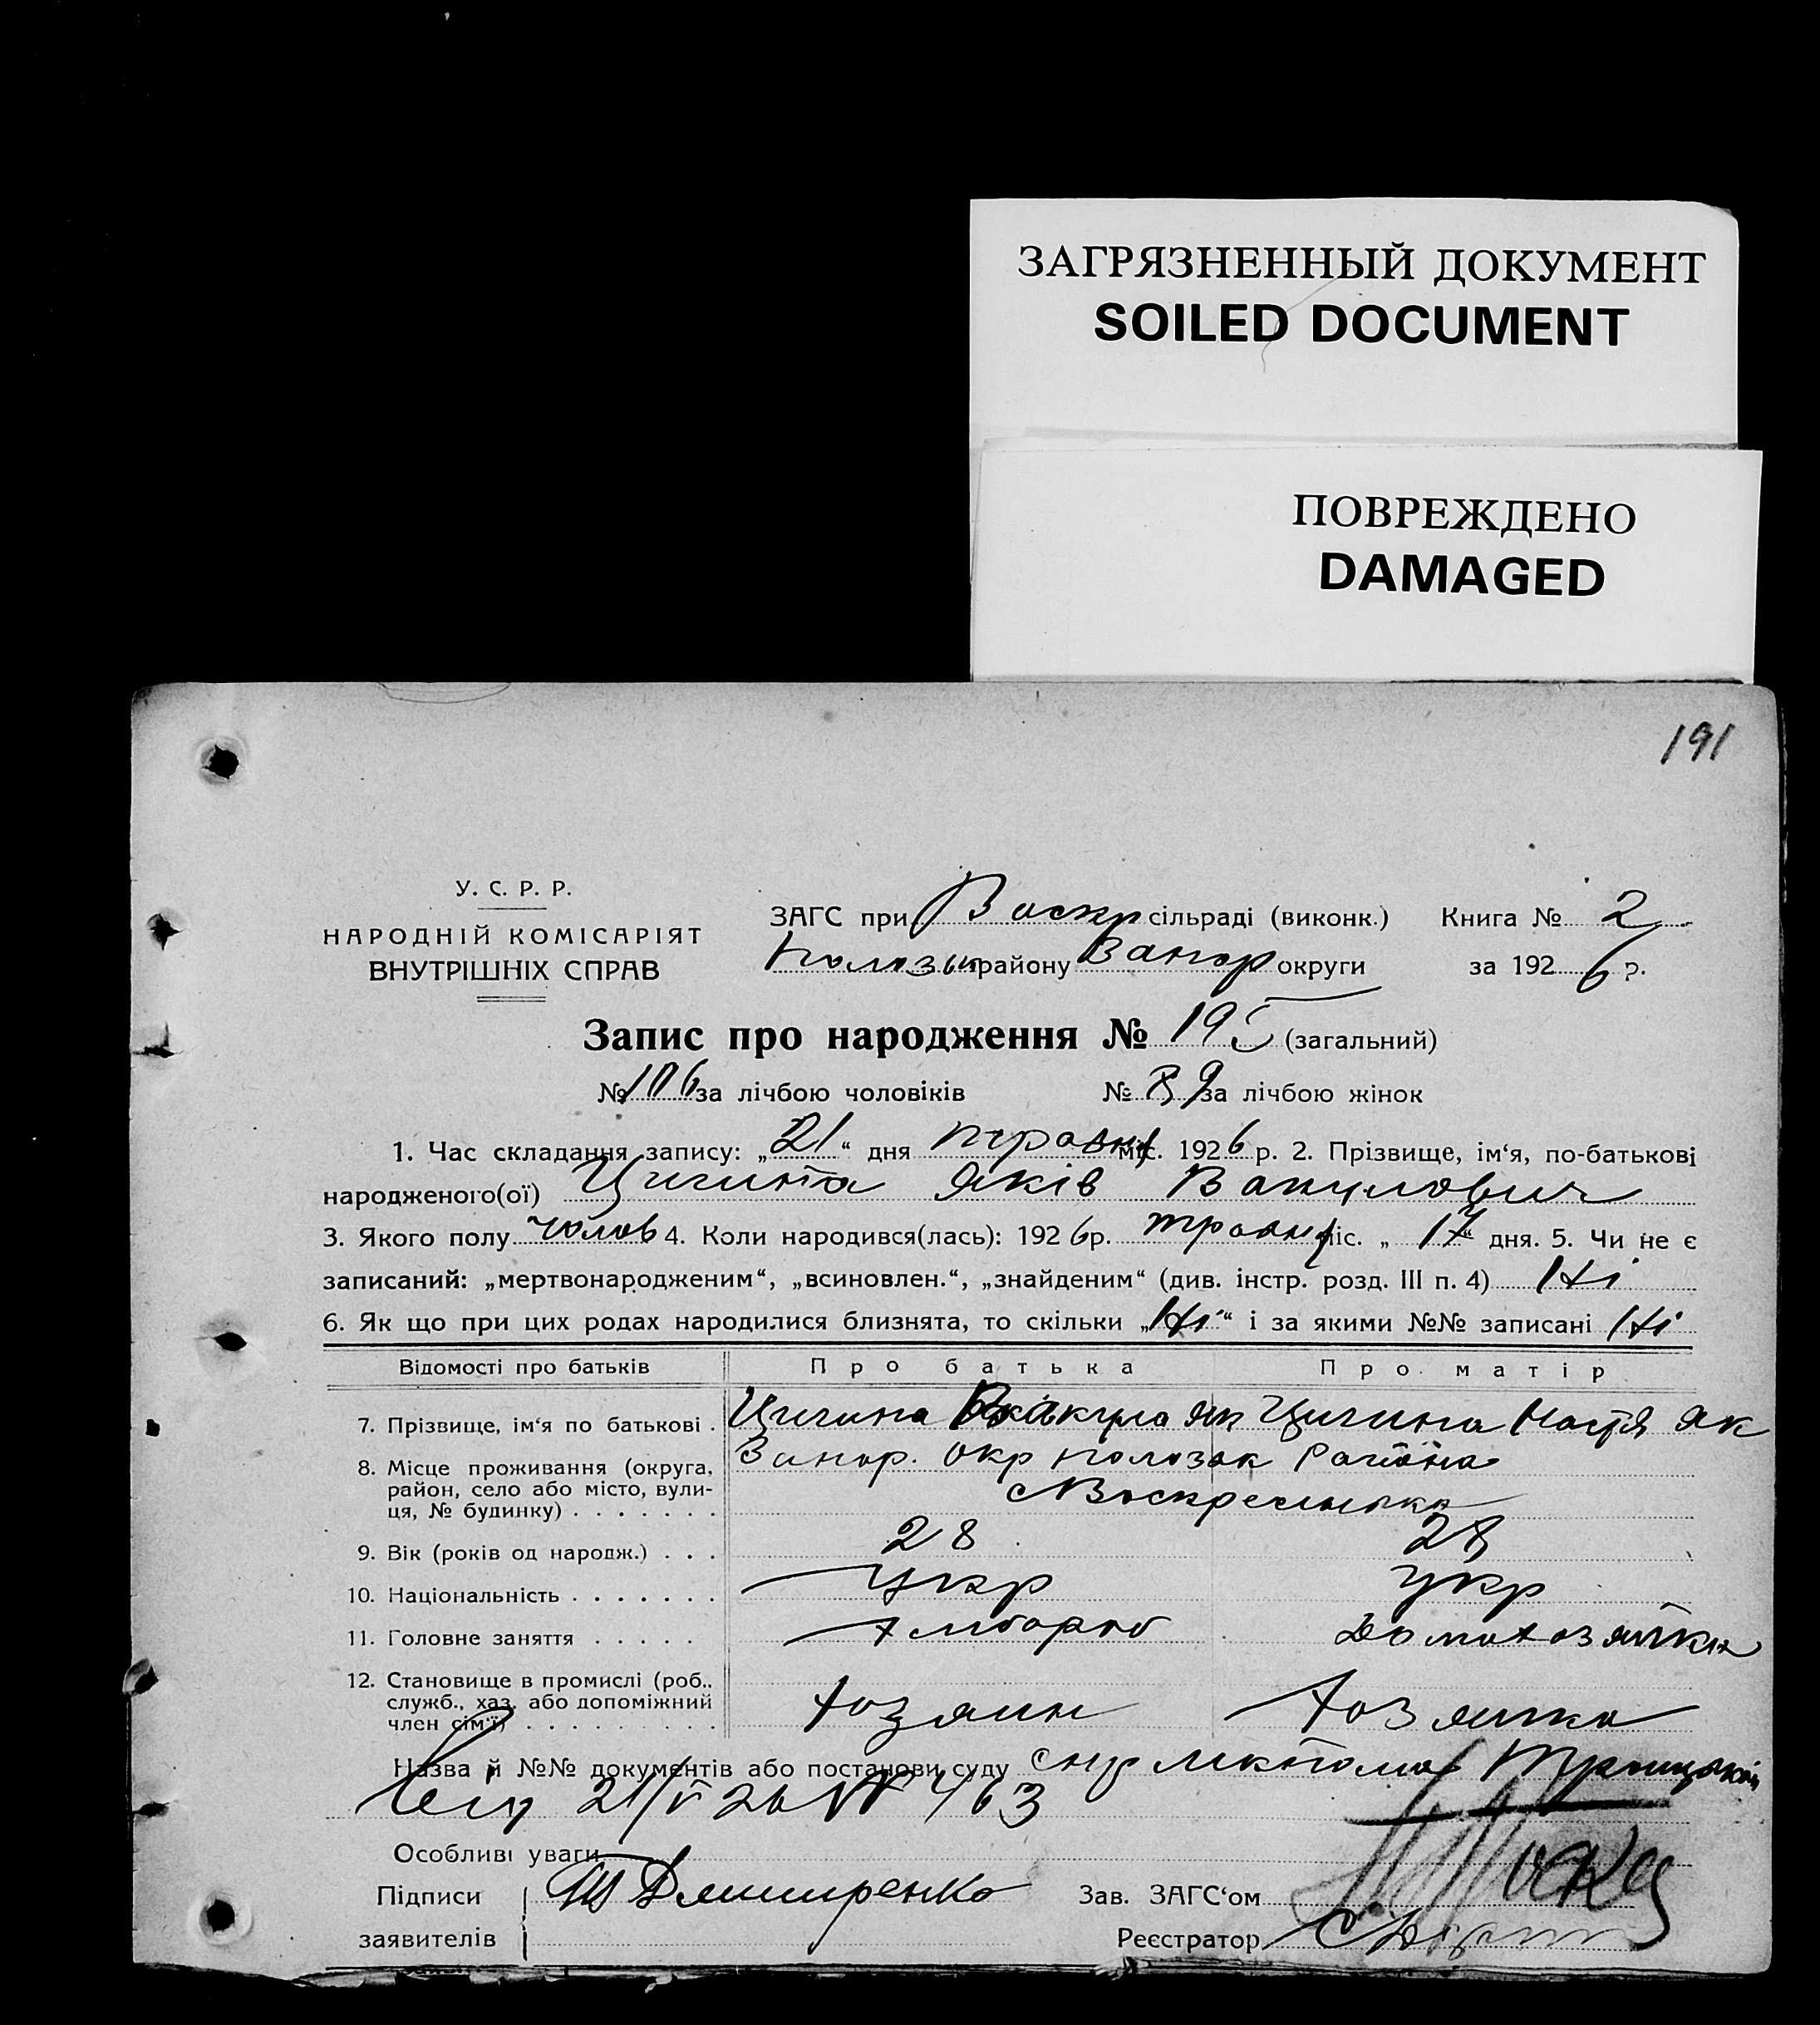 ЗАГРЯЗНЕННЫЙ ДОКУМЕНТ
SOILED DOCUMENT
ПОВРЕЖДЕНО
DAMAGED
191
У. С. Р. Р.
НАРОДНІЙ КОМІСАРІЯТ
ВНУТРІШНІХ СПРАВ
ЗАГС при Воскр сільраді (виконк.) Книга № 2
району Запор округи за 1926 р.
Запис про народження № 195 (загальний)
№ 106 за лічбою чоловіків № 89 за лічбою жінок
1. Час складання запису: „21“ дня травня міс. 1926 р. 2. Прізвище, ім‘я, по-батькові
народженого(ої) Цигина Яків Вакулович
3. Якого полу чолов 4. Коли народився(лась): 1926 р. травня міс. „17“ дня. 5. Чи не є
записаний: „мертвонародженим“, „всиновлен.“, „знайденим“ (див. інстр. розд. III п. 4) Ні
6. Як що при цих родах народилися близнята, то скільки „Ні“ і за якими №№ записані Ні
Відомості про батьків Про батька Про матір
7. Прізвище, ім‘я по батькові . Цигина Вакула Як Цигина Настя Як
8. Місце проживання (округа, район, село або місто, вулиця, № будинку) . . . . . . . Запор. Окр Полозьк Района
с Воскресенька
9. Вік (років од народж.) . . . 28 28
10. Національність . . . . . . . Укр Укр
11. Головне заняття . . . . . Хлібороб Домохозяйка
12. Становище в промислі (роб., служб., хаз. або допоміжний член сім‘ї) . . . . . . . . . Хозяин Хозяйка
Назва й №№ документів або постанови суду
21/V 26 № 463
Особливі уваги
Підписи
заявителів
Зав. ЗАГС‘ом
Реєстратор